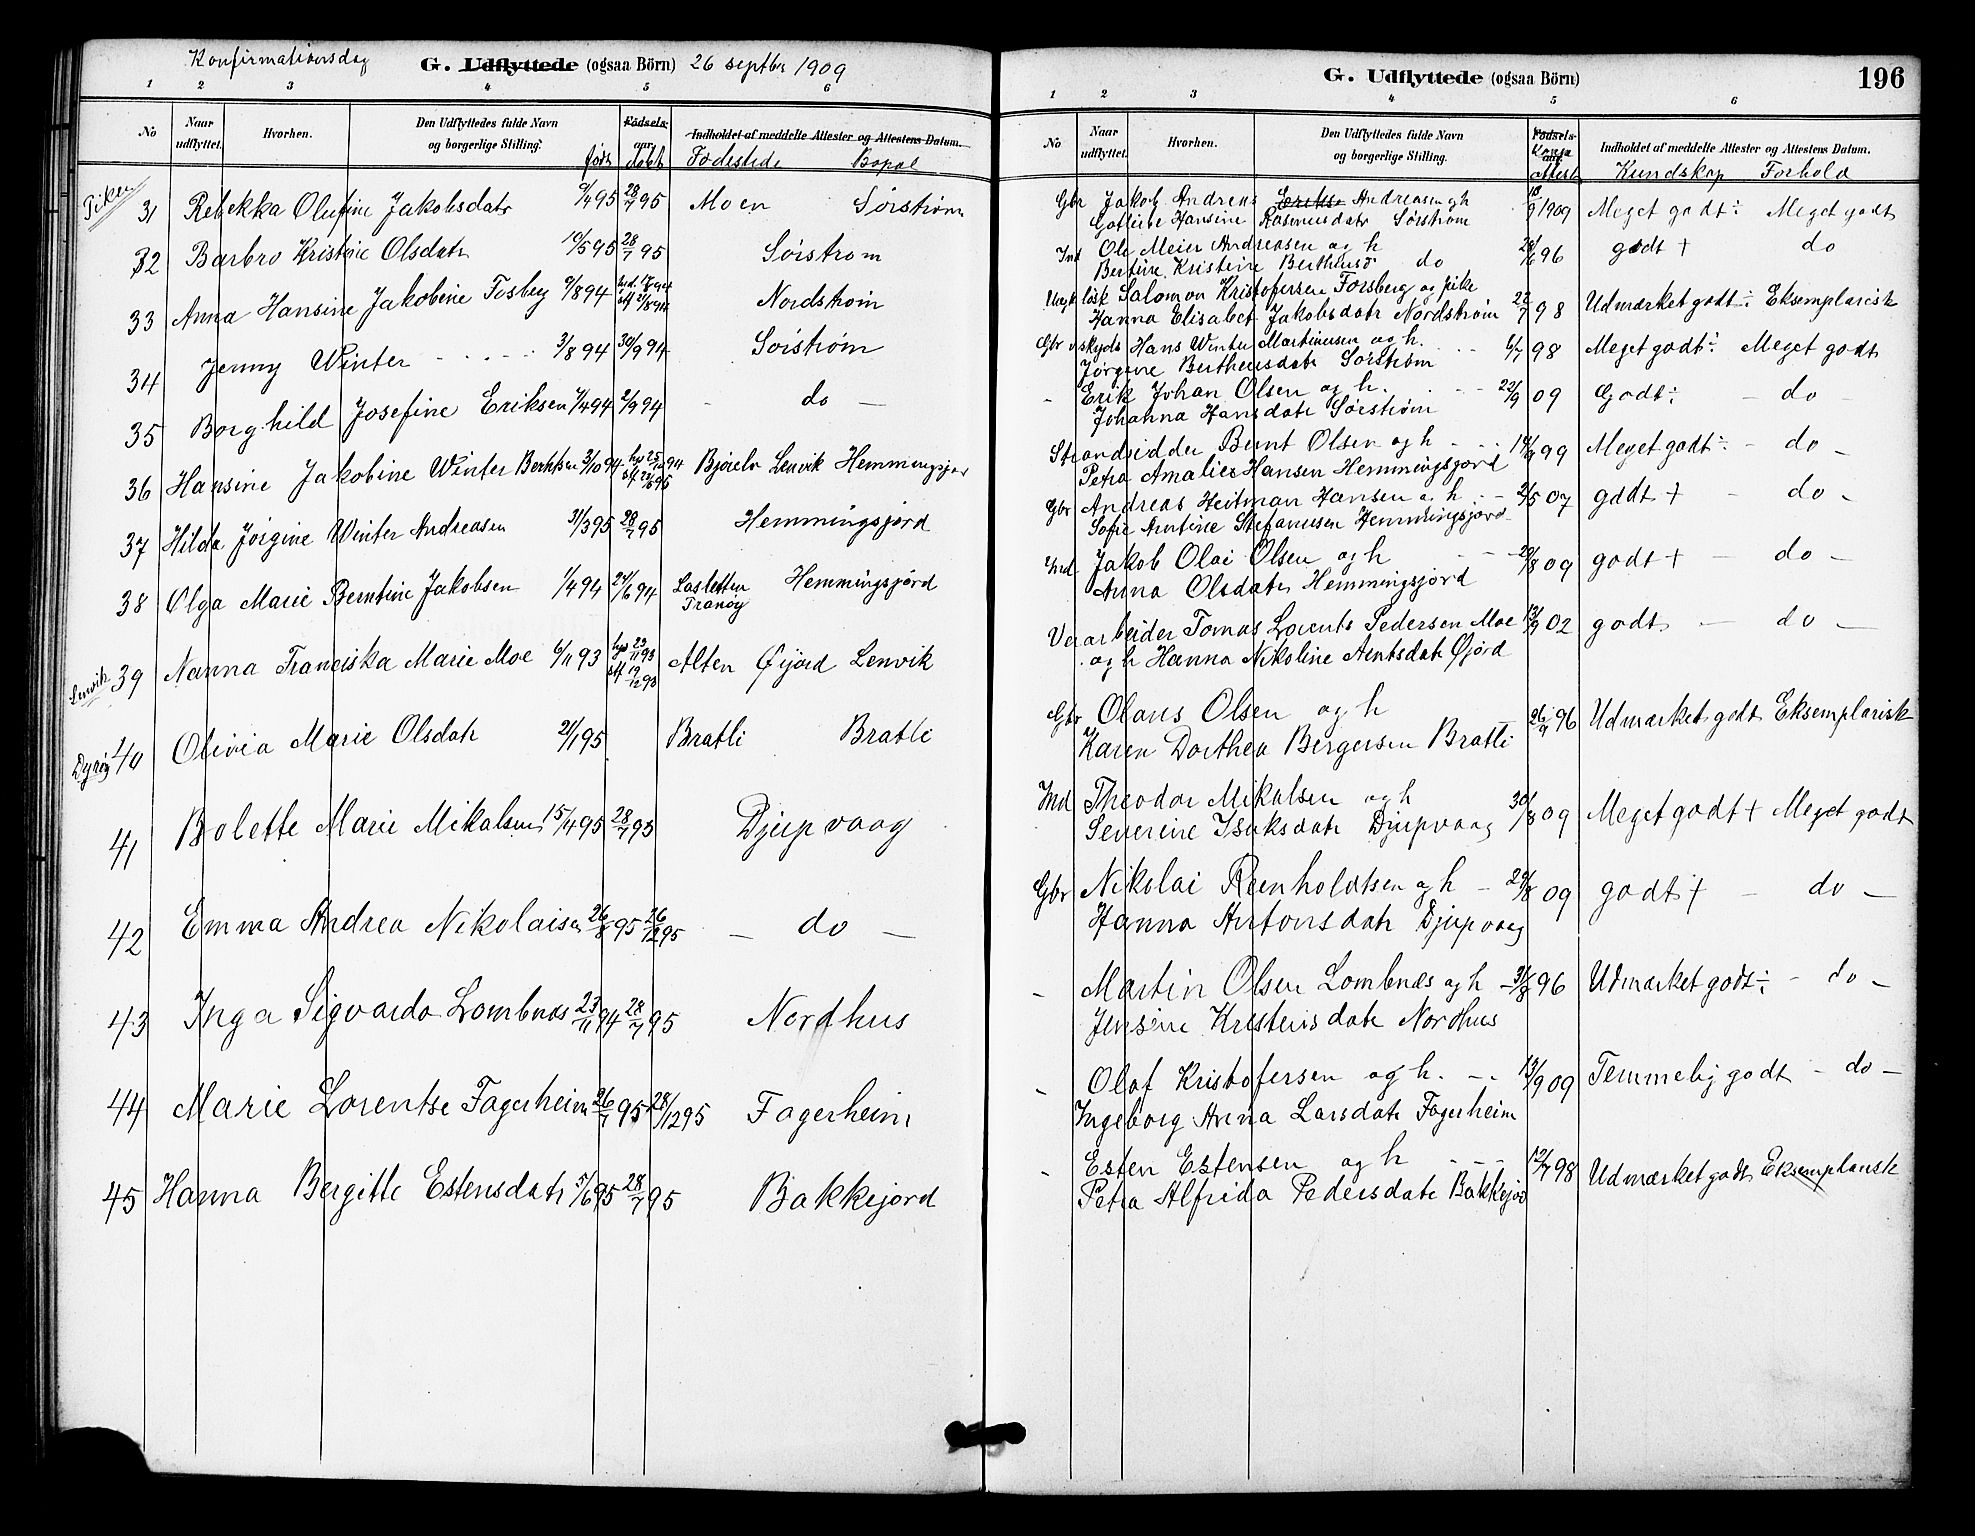 Konfirmationsdag G. Udflyttede (ogsaa Börn) 26 septbr 1909
1 2 3 4 5 6
No Naar udflyttet. Hvorhen. Den Udflyttedes fulde Navn og borgerlige Stilling. Fødsels- aar Indholdet af meddelte Attester og Attestens Datum.
født døbt Fødested Bopæl
Piker
31 Rebekka Olufine Jakobsdatr 9/4 95 28/7 95 Moen Sørstrøm
32 Barbro Kristine Olsdatr 10/5 95 28/7 95 Sørstrøm
33 Anna Hansine Jakobine Fosberg 9/8 94 Nordstrøm
34 Jenny Winter 3/8 94 30/9 94 Sørstrøm
35 Borghild Josefine Eriksen 7/4 94 2/9 94 - do -
36 Hansine Jakobine Winter Berntsen 3/10 94 Lenvik Hemmingsjord
37 Hilda Jørgine Winter Andreasen 31/3 95 28/7 95 Hemmingsjord
38 Olga Marie Berntine Jakobsen 1/4 94 24/6 94 Lasletten Tranøy Hemmingsjord
Lenvik 39 Nanna Franciska Marie Moe 6/11 93 hjd 23/11 93 stf 19/12 93 Alten Øijord Lenvik
Dyrøy 40 Olivia Marie Olsdatr 21/1 95 Bratli Bratli
41 Bolette Marie Mikalsen 15/4 95 28/7 95 Djupvaag
42 Emma Andrea Nikolaisen 26/8 95 26/12 95 - do -
43 Inga Sigvarda Lombnæs 23/11 94 28/7 95 Nordhus
44 Marie Lorentse Fagerheim 26/7 95 28/12 95 Fagerheim
45 Hanna Bergitte Estensdatr 5/6 95 28/7 95 Bakkejord
G. Udflyttede (ogsaa Börn) 196
1 2 3 4 5 6
No Naar udflyttet. Hvorhen. Den Udflyttedes fulde Navn og borgerlige Stilling. Fødsels- aar Indholdet af meddelte Attester og Attestens Datum.
attest Kundskap Forhold
Gbr Jakob Andreas Eriks Andreasen og h 18/9 1909 Meget godt ÷ Meget godt
Gotlibe Hansine Rasmusdatr Sørstrøm
Ind Ole Meier Andreasen og h 28/6 96 godt + do
Bertine Kristine Berthus do
Salomon Kristofersen Forsberg og pike 22/7 98 Udmærket godt ÷ Eksemplarisk
Hanna Elisabet Jakobsdatr Nordstrøm
Gbr Hans Winter Martinusen og h. 6/7 98 Meget godt ÷ Meget godt
Jørgine Bertheusdatr Sørstrøm
- Erik Johan Olsen og h. 22/9 09 Godt ÷ - do -
Johanna Hansdatr Sørstrøm
Strandsidder Bernt Olsen og h 99 Meget godt ÷ - do -
Petra Amalie Hansen Hemmingsjord
Gbr Andreas Heitman Hansen og h 07 godt + - do -
Sofie Arntine Stefanusen Hemmingsjord
Ind Jakob Olai Olsen og h 29/8 09 godt + - do -
Anna Olsdatr Hemmingsjord
Vei arbeider Tomas Lorents Pedersen Moe 13/9 02 godt - do -
og h Hanna Nikoline Arntsdatr Øjord
Gbr Olaus Olsen og h 96 Udmærket godt Eksemplarisk
Karen Dorthea Bergersen Bratli
Ind Theodor Mikalsen og h 30/8 09 Meget godt + Meget godt
Severine Isaksdatr Djupvaag
Gbr Nikolai Reinholdtsen og h - 29/8 09 godt + - do -
Hanna Antonsdatr Djupvaag
- Martin Olsen Lombnæs og h - 31/8 96 Udmærket godt ÷ - do -
Jensine Kristensdatr Nordhus
- Olaf Kristofersen og h. 13/9 09 Temmelig godt - do -
Ingeborg Anna Larsdatr Fagerheim
- Esten Estensen og h 12/7 98 Udmærket godt Eksemplarisk
Petra Alfrida Pedersdatr Bakkejord